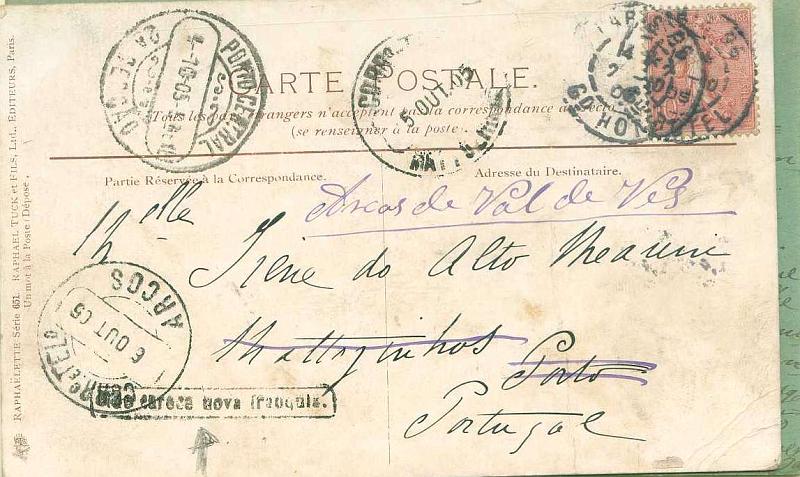 CARTE POSTALE.
Tous les pays étrangers n'acceptent pas la correspondance au recto
(se renseigner à la poste).
Partie Réservée à la Correspondance.
Adresse du Destinataire.
Arcos de Val de Vez
Mlle
Irene do Alto Mearim
Mattosinhos
Porto
Portugal
Não carece nova franquia.
PORTO CENTRAL
4-10-05
5 OUT. 05
ARCOS
6 OUT 05
CORR. E TEL.
RAPHAELETTE Série 651. RAPHAEL TUCK et FILS, Ltd., EDITEURS, Paris.
Un mot à la Poste (Déposé)